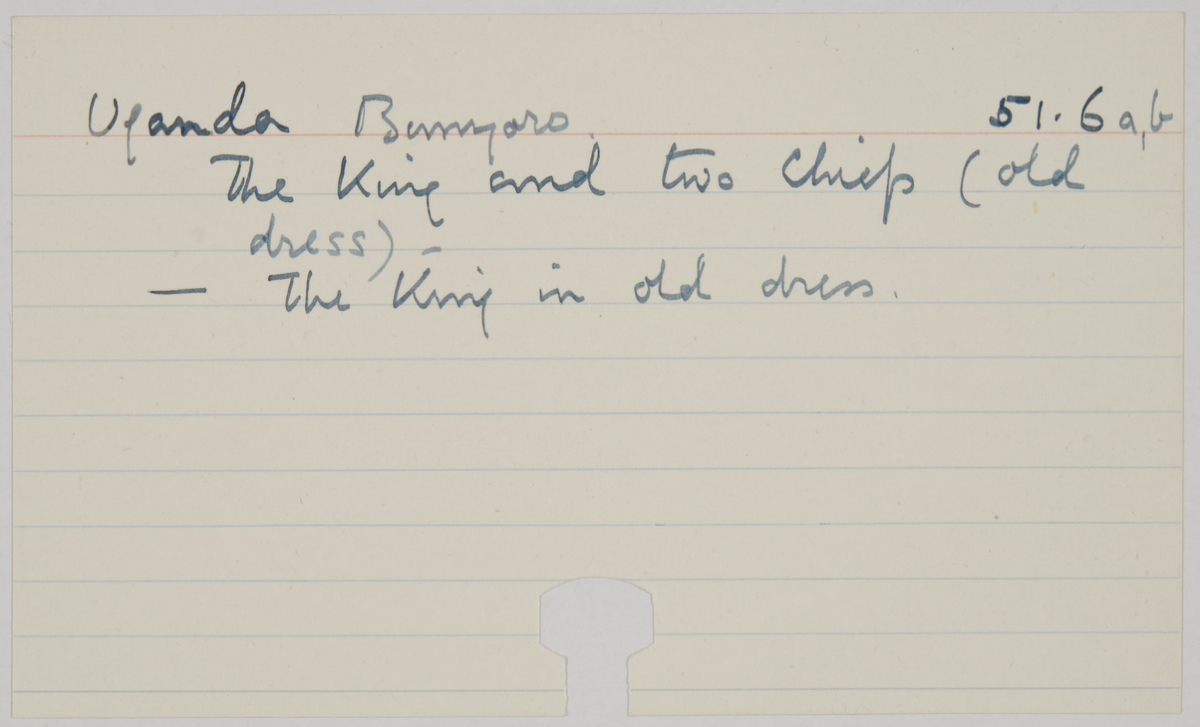 Uganda Bunyoro. 51.6 a,b
The King and two Chiefs (old
dress) -
— The King in old dress.